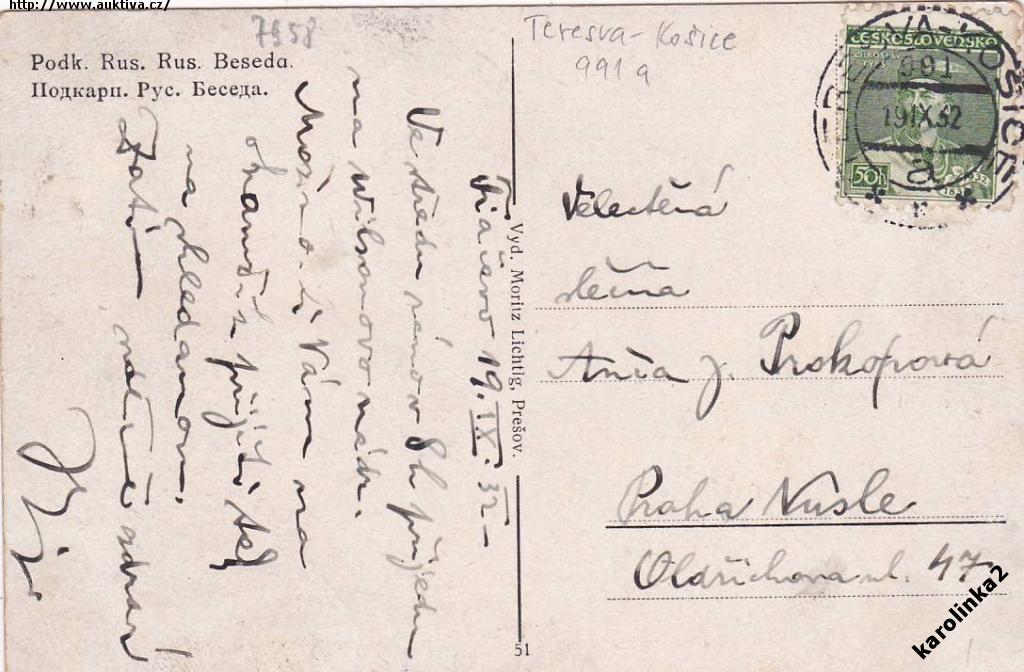 http://www.auktiva.cz/
7958
Teresva - Košice
991 a
Podk. Rus. Rus. Beseda.
Подкарп. Рус. Беседа.
ČESKOSLOVENSKO
50h
TERESVA-KOŠICE
991
19.IX.32
a
Ťiačevo 19.IX.32
Ve středu ráno v 8h přijedu
na Wilsonovo nádr.
Možno-li Vám na
okamžik přijíti též
na shledanou.
Zatím
Velectěná
slečna
Anča J. Prokopová
Praha Nusle
Oldřichova ul. 47
Vyd. Moritz Lichtig, Prešov.
51
karolinka2